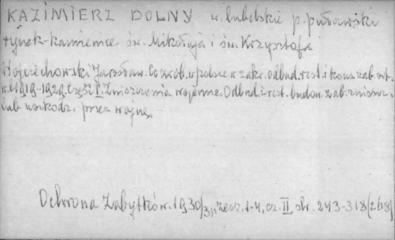 KAZIMIERZ DOLNY w. lubelskie p. puławski
rynek-kamienice św. Mikołaja i św. Krzysztofa
Wojciechowski Jarosław. Co zrob. w Polsce w zakr. odbud. rest. i kons. zab. szt.
w l. 1919-1929. Część I. Zniszczenia wojenne. Odbud. i rest. budow. zab. zniszcz.
lub uszkodz. przez wojnę.
Ochrona Zabytków. 1930/31, zesz. 1-4, cz. II, str. 243-318 (268)